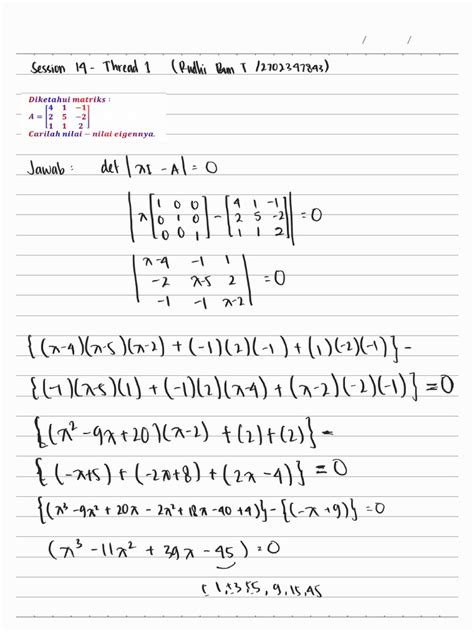 / /
Session 14 - Thread 1 (Rudhi Bam T /2702347843)
Diketahui matriks :
A = [4 1 -1
2 5 -2
1 1 2]
Carilah nilai - nilai eigennya.
Jawab : det |λI - A| = 0
|λ[1 0 0; 0 1 0; 0 0 1] - [4 1 -1; 2 5 -2; 1 1 2]| = 0
|λ-4 -1 1
-2 λ-5 2
-1 -1 λ-2| = 0
{(λ-4)(λ-5)(λ-2) + (-1)(2)(-1) + (1)(-2)(-1)} -
{(-1)(λ-5)(1) + (-1)(2)(λ-4) + (λ-2)(-2)(-1)} = 0
{(λ² - 9λ + 20)(λ-2) + (2) + (2)} -
{(-λ+5) + (-2λ+8) + (2λ-4)} = 0
{(λ³ - 9λ² + 20λ - 2λ² + 18λ - 40 + 4)} - {(-λ + 9)} = 0
(λ³ - 11λ² + 39λ - 45) = 0
9, 15, 45